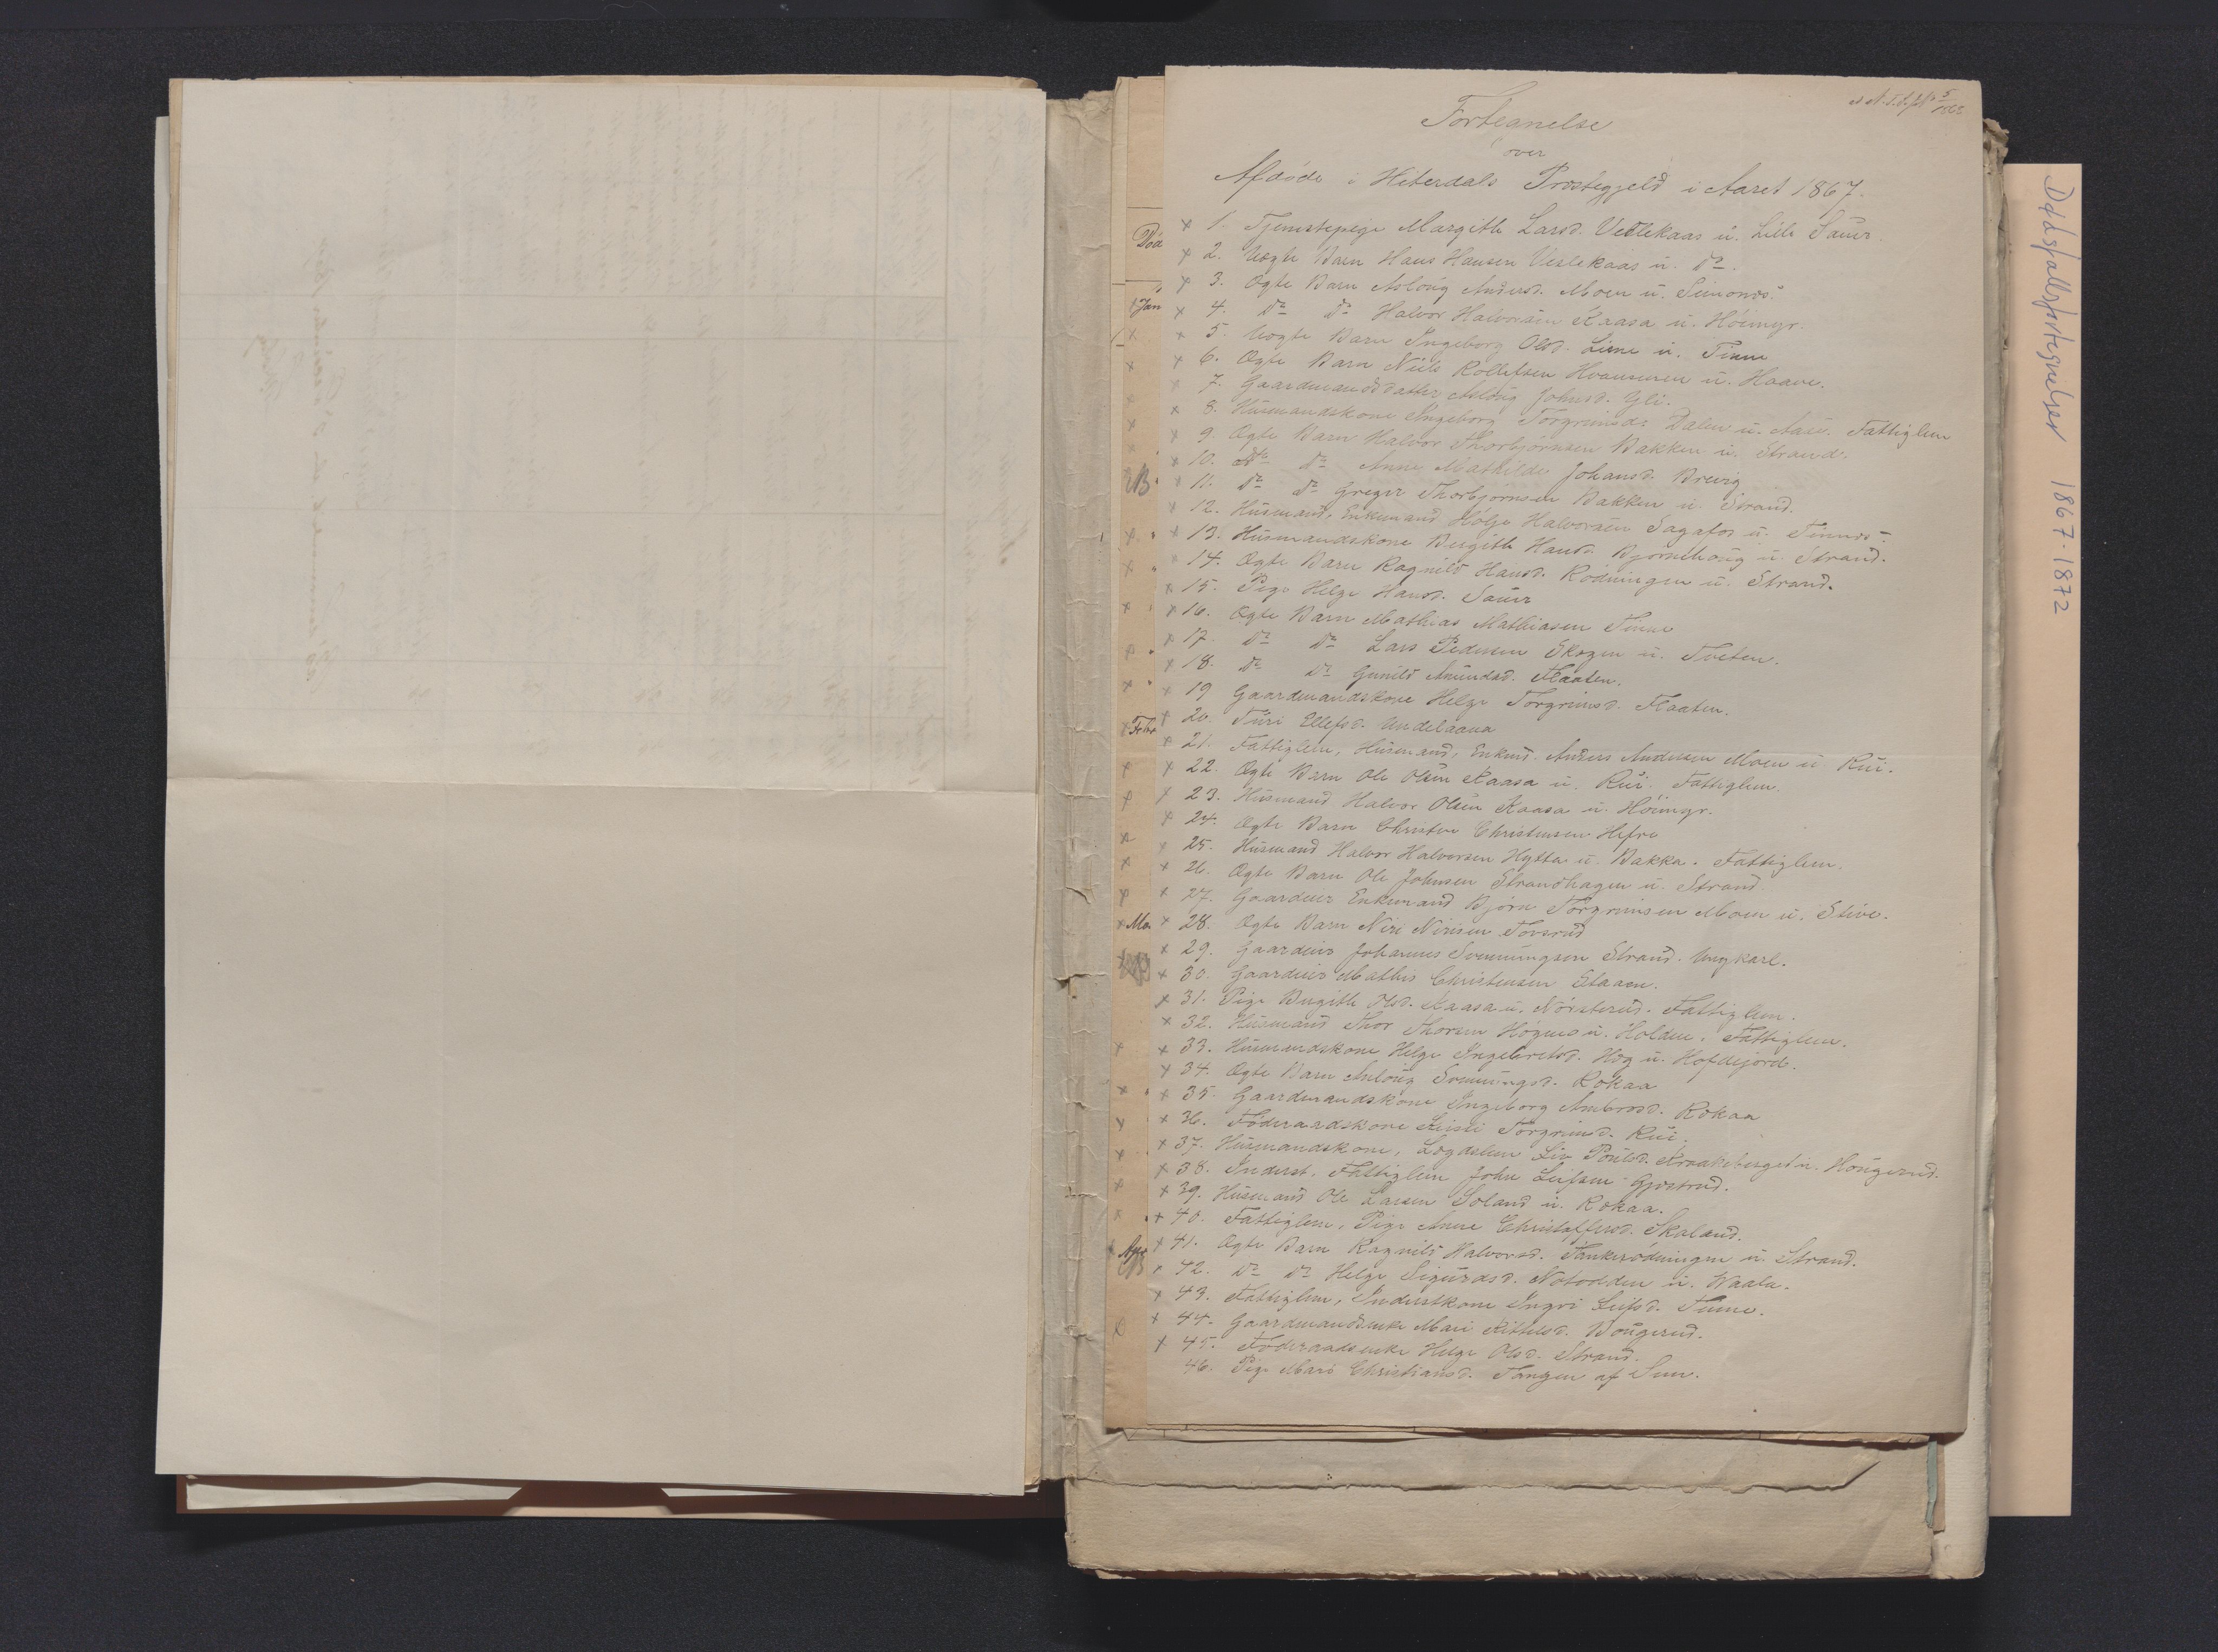 Fortegnelse
over
Afdöde i Hiterdals Præstegjeld i Aaret 1867.
1. Tjenestepige Margith Larsd. Vedlekaas u. Lille Sauer.
2. Uægte Barn Hans Hansen Veslekaas u. do.
3. Ægte Barn Aslöug Andersd. Moen u. Simones.
4. do do Halvor Halvorsen Kaasa u. Höimyr.
5. Uægte Barn Ingeborg Olsd. Liene u. Tinne
6. Ægte Barn Niels Rollefsen u. Haave.
7. Gaardmandsdatter Aslöug Johnsd. Gli.
8. Husmandskone Ingeborg Torgrimsd. Dalen u. Aase. Fattiglem
9. Ægte Barn Halvor Thorbjörnsen Bakken u. Strand.
10. do do Anne Mathilde Johansd. Brevig
11. do do Greger Thorbjörnsen Bakken u. Strand.
12. Husmand, Enkemand Hölje Halvorsen Sagafos u. Tinnes.
13. Husmandskone Birgith Hansd. Bjornehaug u. Strand.
14. Ægte Barn Ragnild Hansd. Rödningen u. Strand.
15. Pige Helge Hansd. Sauer
16. Ægte Barn Mathias Mathiasen Tinne
17. do do Lars Pedersen Skogen u. Tveten.
18. do do Gunild Amundsd. Flaaten.
19 Gaardmandskone Helge Torgrimsd. Flaaten.
20. Turi Ellefsd. Undelaana
21. Fattiglem, Husmand, Enkmd. Anders Andersen Moen u. Rui.
22. Ægte Barn Ole Olsen Kaasa u. Rui. Fattiglem.
23. Husmand Halvor Olsen Kaasa u. Höimyr.
24. Ægte Barn Christen Christensen Hefre
25. Husmand Halvor Halvorsen Hytta u. Bakka. Fattiglem.
26. Ægte Barn Ole Johnsen Strandhagen u. Strand.
27. Gaardeier Enkemand Björn Torgrimsen Moen u. Stive.
28. Ægte Barn Niri Nirisen Tovsrud
29. Gaardeier Johannes Sveinungsen Strand. Ungkarl.
30. Gaardeier Mathis Christensen Staaen.
31. Pige Birgith Olsd. Kaasa u. Nörsterud. Fattiglem.
32. Husmand Thor Thorsen Högmo u. Holden. Fattiglem.
33. Husmandskone Helge Ingebretsd. Hæg u. Hofdejord.
34. Ægte Barn Aslöug Sveinungsd. Rokaa
35. Gaardmandskone Ingeborg Ambrosd. Rokaa
36. Föderaadskone Kristi Torgrimsd. Rui.
37. Husmandskone, Lægdslem Liv Poulsd. Kraakeberget u. Hougerud.
38. Inderst, Fattiglem John Leifsen Gjostrud.
39. Husmand Ole Larsen Soland u. Rokaa.
40. Fattiglem, Pige Anne Christoffersd. Skaland.
41. Ægte Barn Ragnild Halvorsd. Tankerödningen u. Strand.
42. do do Helge Sigurdsd. Notodden u. Waala.
43. Fattiglem, Inderstkone Ingri Leifsd. Tinne.
44. Gaardmandsenke Mari Kittelsd. Bougerud.
45. Föderaadsenke Helge Olsd. Strand.
46. Pige Mari Christiansd. Tangen af Sem.
Död
Jan
Febr
Ma
Apr
Dødsfallsfortegnelser 1867-1872